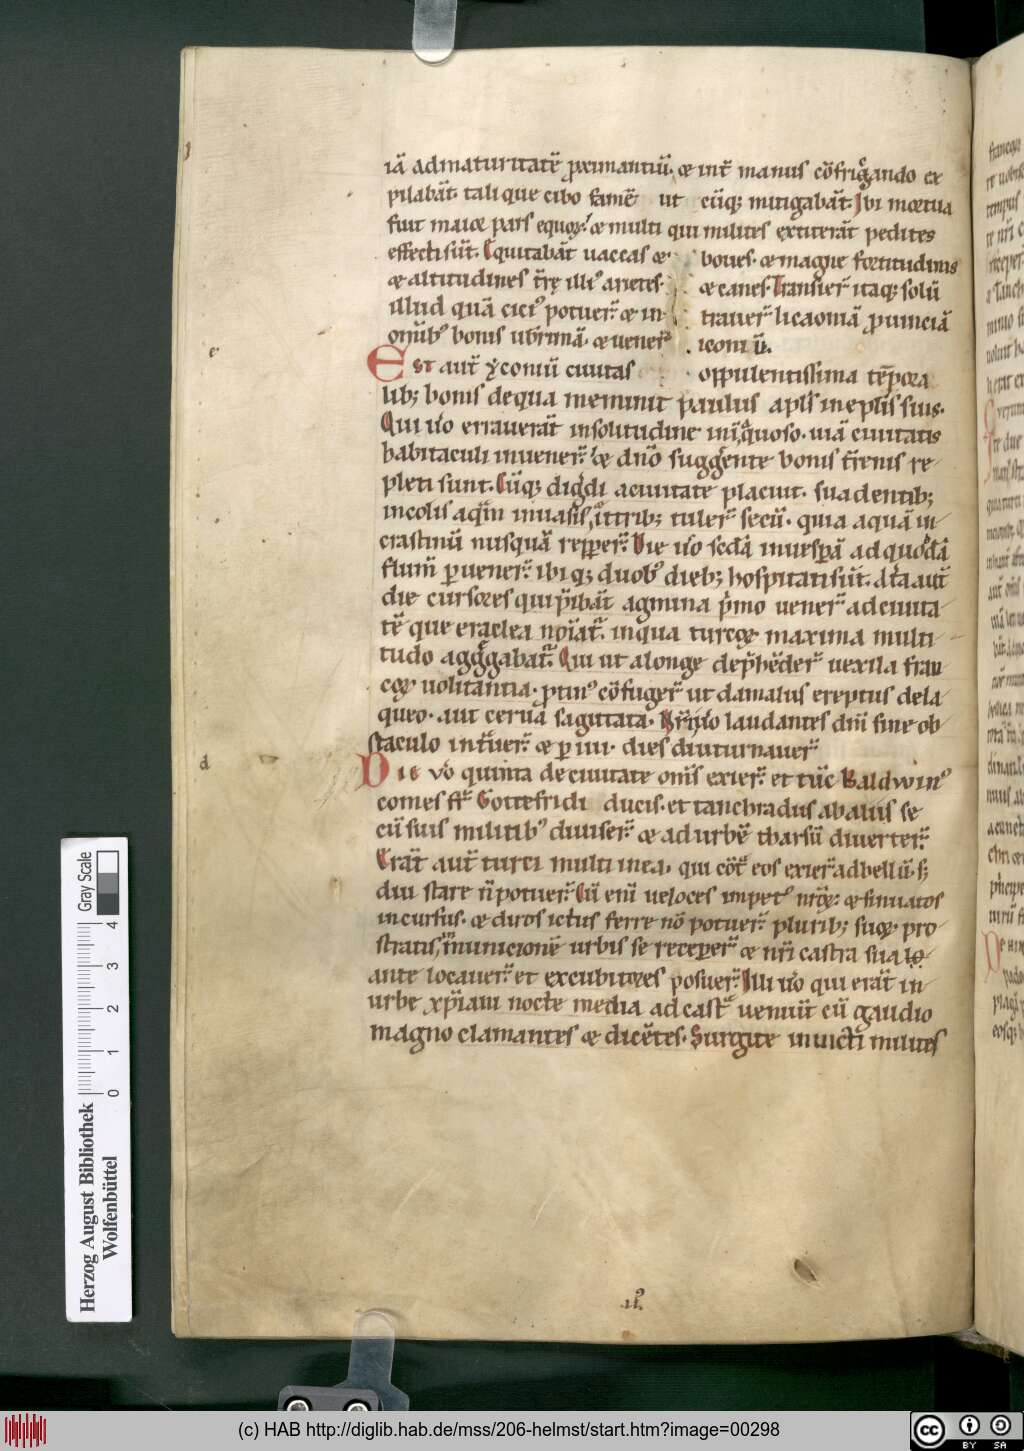 iā ad maturitatē proximantiū. & int̄ manus cōfrigando ex
pilabāt. tali que cibo famē ut cūq; mitigabāt. Ibi mortua
fuit maior pars equoꝝ. & multi qui milites extiterāt pedites
effecti sūt. Equitabāt uaccas & boues. & magne fortitudinis
& altitudines t̄rę illi᷒ arietes. & canes. Transier̄ itaq; solū
illud quā citi᷒ potuer̄. & in trauer̄ licaoniā prouinciā
om̄ib᷒ bonis uberrimā. & uener̄ iconiū.
Est aut̄ yconiū ciuitas oppulentissima tēpora
lib; bonis de qua meminit paulus apl̄s in ep̄lis suis.
Qui ůo errauerāt in solitudine inuiquoso. uiā ciuitatis
habitaculi inuener̄. & dn̄o suggerente bonis t̄renis re
pleti sunt. Cūq; digdi a ciuitate placuit. suadentib;
incolis aq̄m in uasis ittrib; tuler̄ secū. quia aquā in
crastinū nusquā repper̄. Die ůo sed̄a in uesp̄a ad quoddā
flum̄ puener̄. ibi q; duob᷒ dieb; hospitati sūt. At̄a aut̄
die cursores qui p̄ibāt agmina p̄mo uener̄ ad ciuita
tē que eraclea noīat̄. in qua turcoꝝ maxima multi
tudo aggregabat̄. Qui ut a longe dep̄hēder̄ uexila fran
coꝝ uolitantia. ptin᷒ cōfuger̄ ut damalus ereptus de la
queo. aut cerua sagittata. Nr̄i ůo laudantes dm̄ sine ob
staculo intuer̄. & p iiii. dies diuturnauer̄.
Die ů quinta de ciuitate om̄s exier̄. et tūc Baldwin᷒
comes fr̄ Gottefridi ducis. et tanchradus ab aliis se
cū suis militib᷒ diuiser̄ & ad urbē tharsū diuerter̄.
Erāt aut̄ turci multi in ea. qui cōt̄ eos exier̄ ad bellū. s;
diu stare n̄ potuer̄. Cū eni ueloces impet᷒ nr̄oꝝ. & sinuatos
incursus. & diros ictus ferre nō potuer̄. plurib; suoꝝ. pro
stratis, in municionē urbis se receper̄. & nr̄i castra sua lo
ante locauer̄. et excubitores posuer̄. Illi ůo qui erāt in
urbe xp̄iani nocte media ad cast̄ ueniūt cū gaudio
magno clamantes & dicētes. Surgite inuicti milites
e
d
Herzog August Bibliothek
Wolfenbüttel
Gray Scale
0 1 2 3 4
(c) HAB http://diglib.hab.de/mss/206-helmst/start.htm?image=00298
cc BY SA